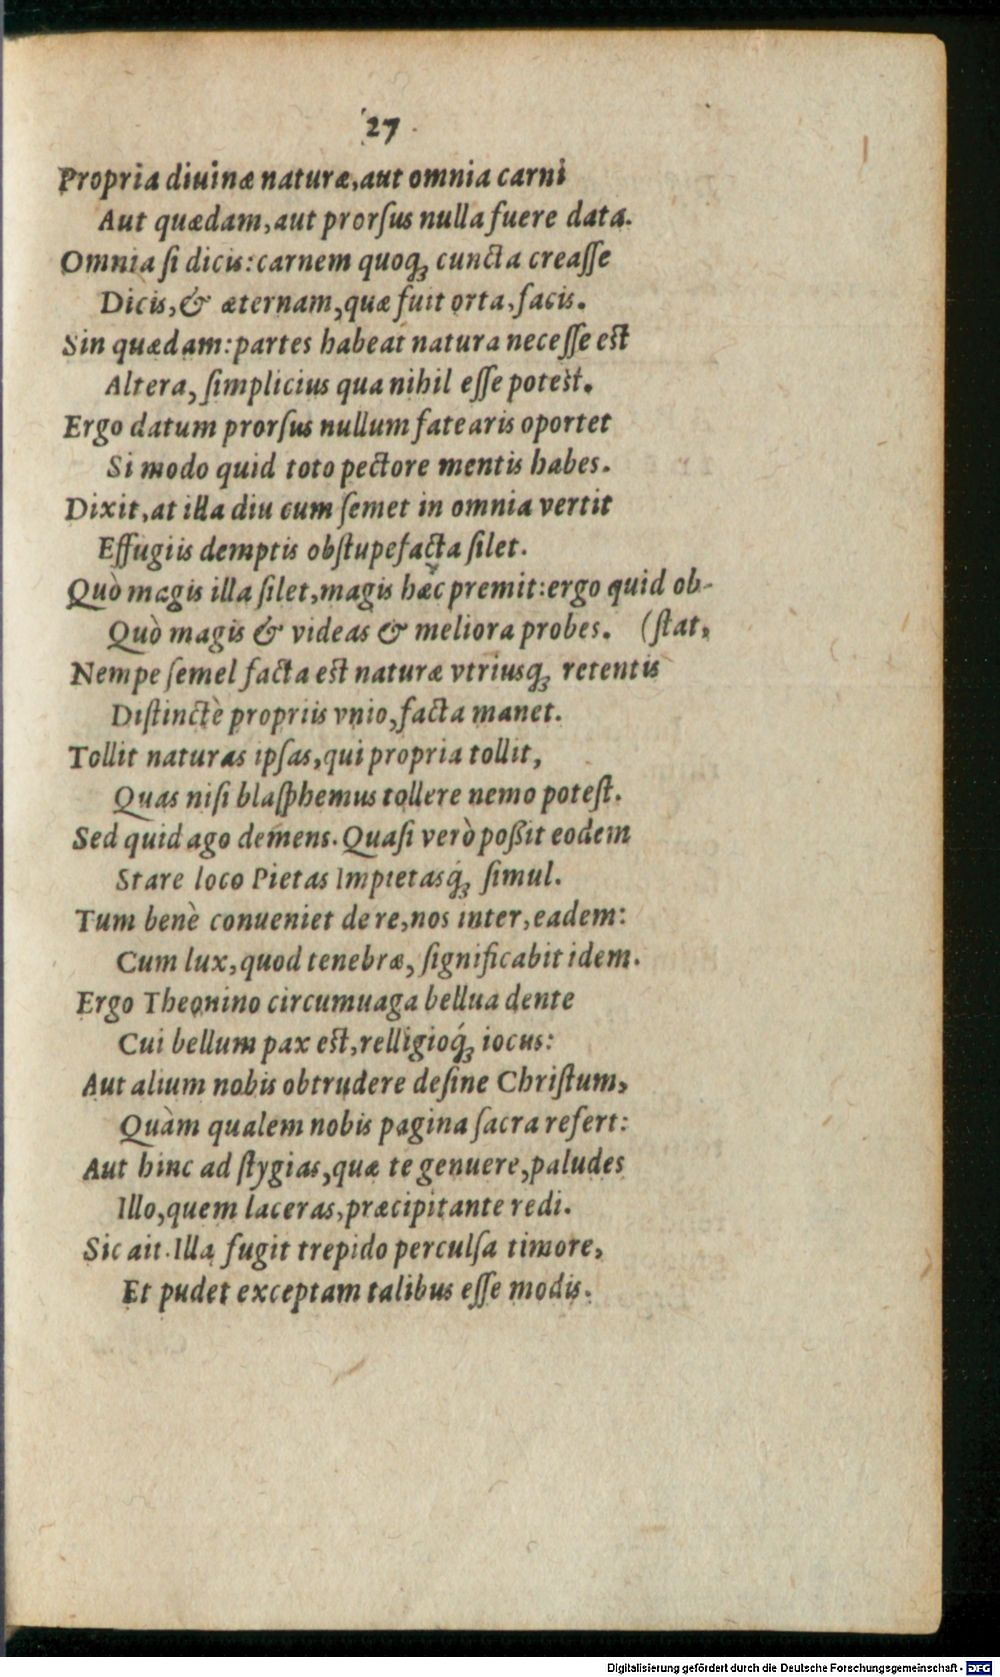 27
Propria diuinæ naturæ, aut omnia carni
Aut quædam, aut prorſus nulla fuere data.
Omnia ſi dicis: carnem quoq; cuncta creaſſe
Dicis, & æternam, quæ fuit orta, facis.
Sin quædam: partes habeat natura neceſſe est
Altera, ſimplicius qua nihil eſſe potest.
Ergo datum prorſus nullum fatearis oportet
Si modo quid toto pectore mentis habes.
Dixit, at illa diu cum ſemet in omnia vertit
Effugiis demptis obſtupefacta ſilet.
Quò magis illa ſilet, magis hæc premit: ergo quid ob-
Quò magis & videas & meliora probes. (ſtat,
Nempe ſemel facta est naturæ vtriusq; retentis
Diſtinctè propriis vnio, facta manet.
Tollit naturas ipſas, qui propria tollit,
Quas niſi blaſphemus tollere nemo poteſt.
Sed quid ago demens. Quaſi verò poßit eodem
Stare loco Pietas Impietasq́; ſimul.
Tum benè conueniet de re, nos inter, eadem:
Cum lux, quod tenebræ, ſignificabit idem.
Ergo Theonino circumuaga bellua dente
Cui bellum pax est, relligioq́; iocus:
Aut alium nobis obtrudere deſine Chriſtum,
Quàm qualem nobis pagina ſacra refert:
Aut hinc ad ſtygias, quæ te genuere, paludes
Illo, quem laceras, præcipitante redi.
Sic ait. Illa fugit trepido perculſa timore,
Et pudet exceptam talibus eſſe modis.
Digitalisierung gefördert durch die Deutsche Forschungsgemeinschaft - DFG